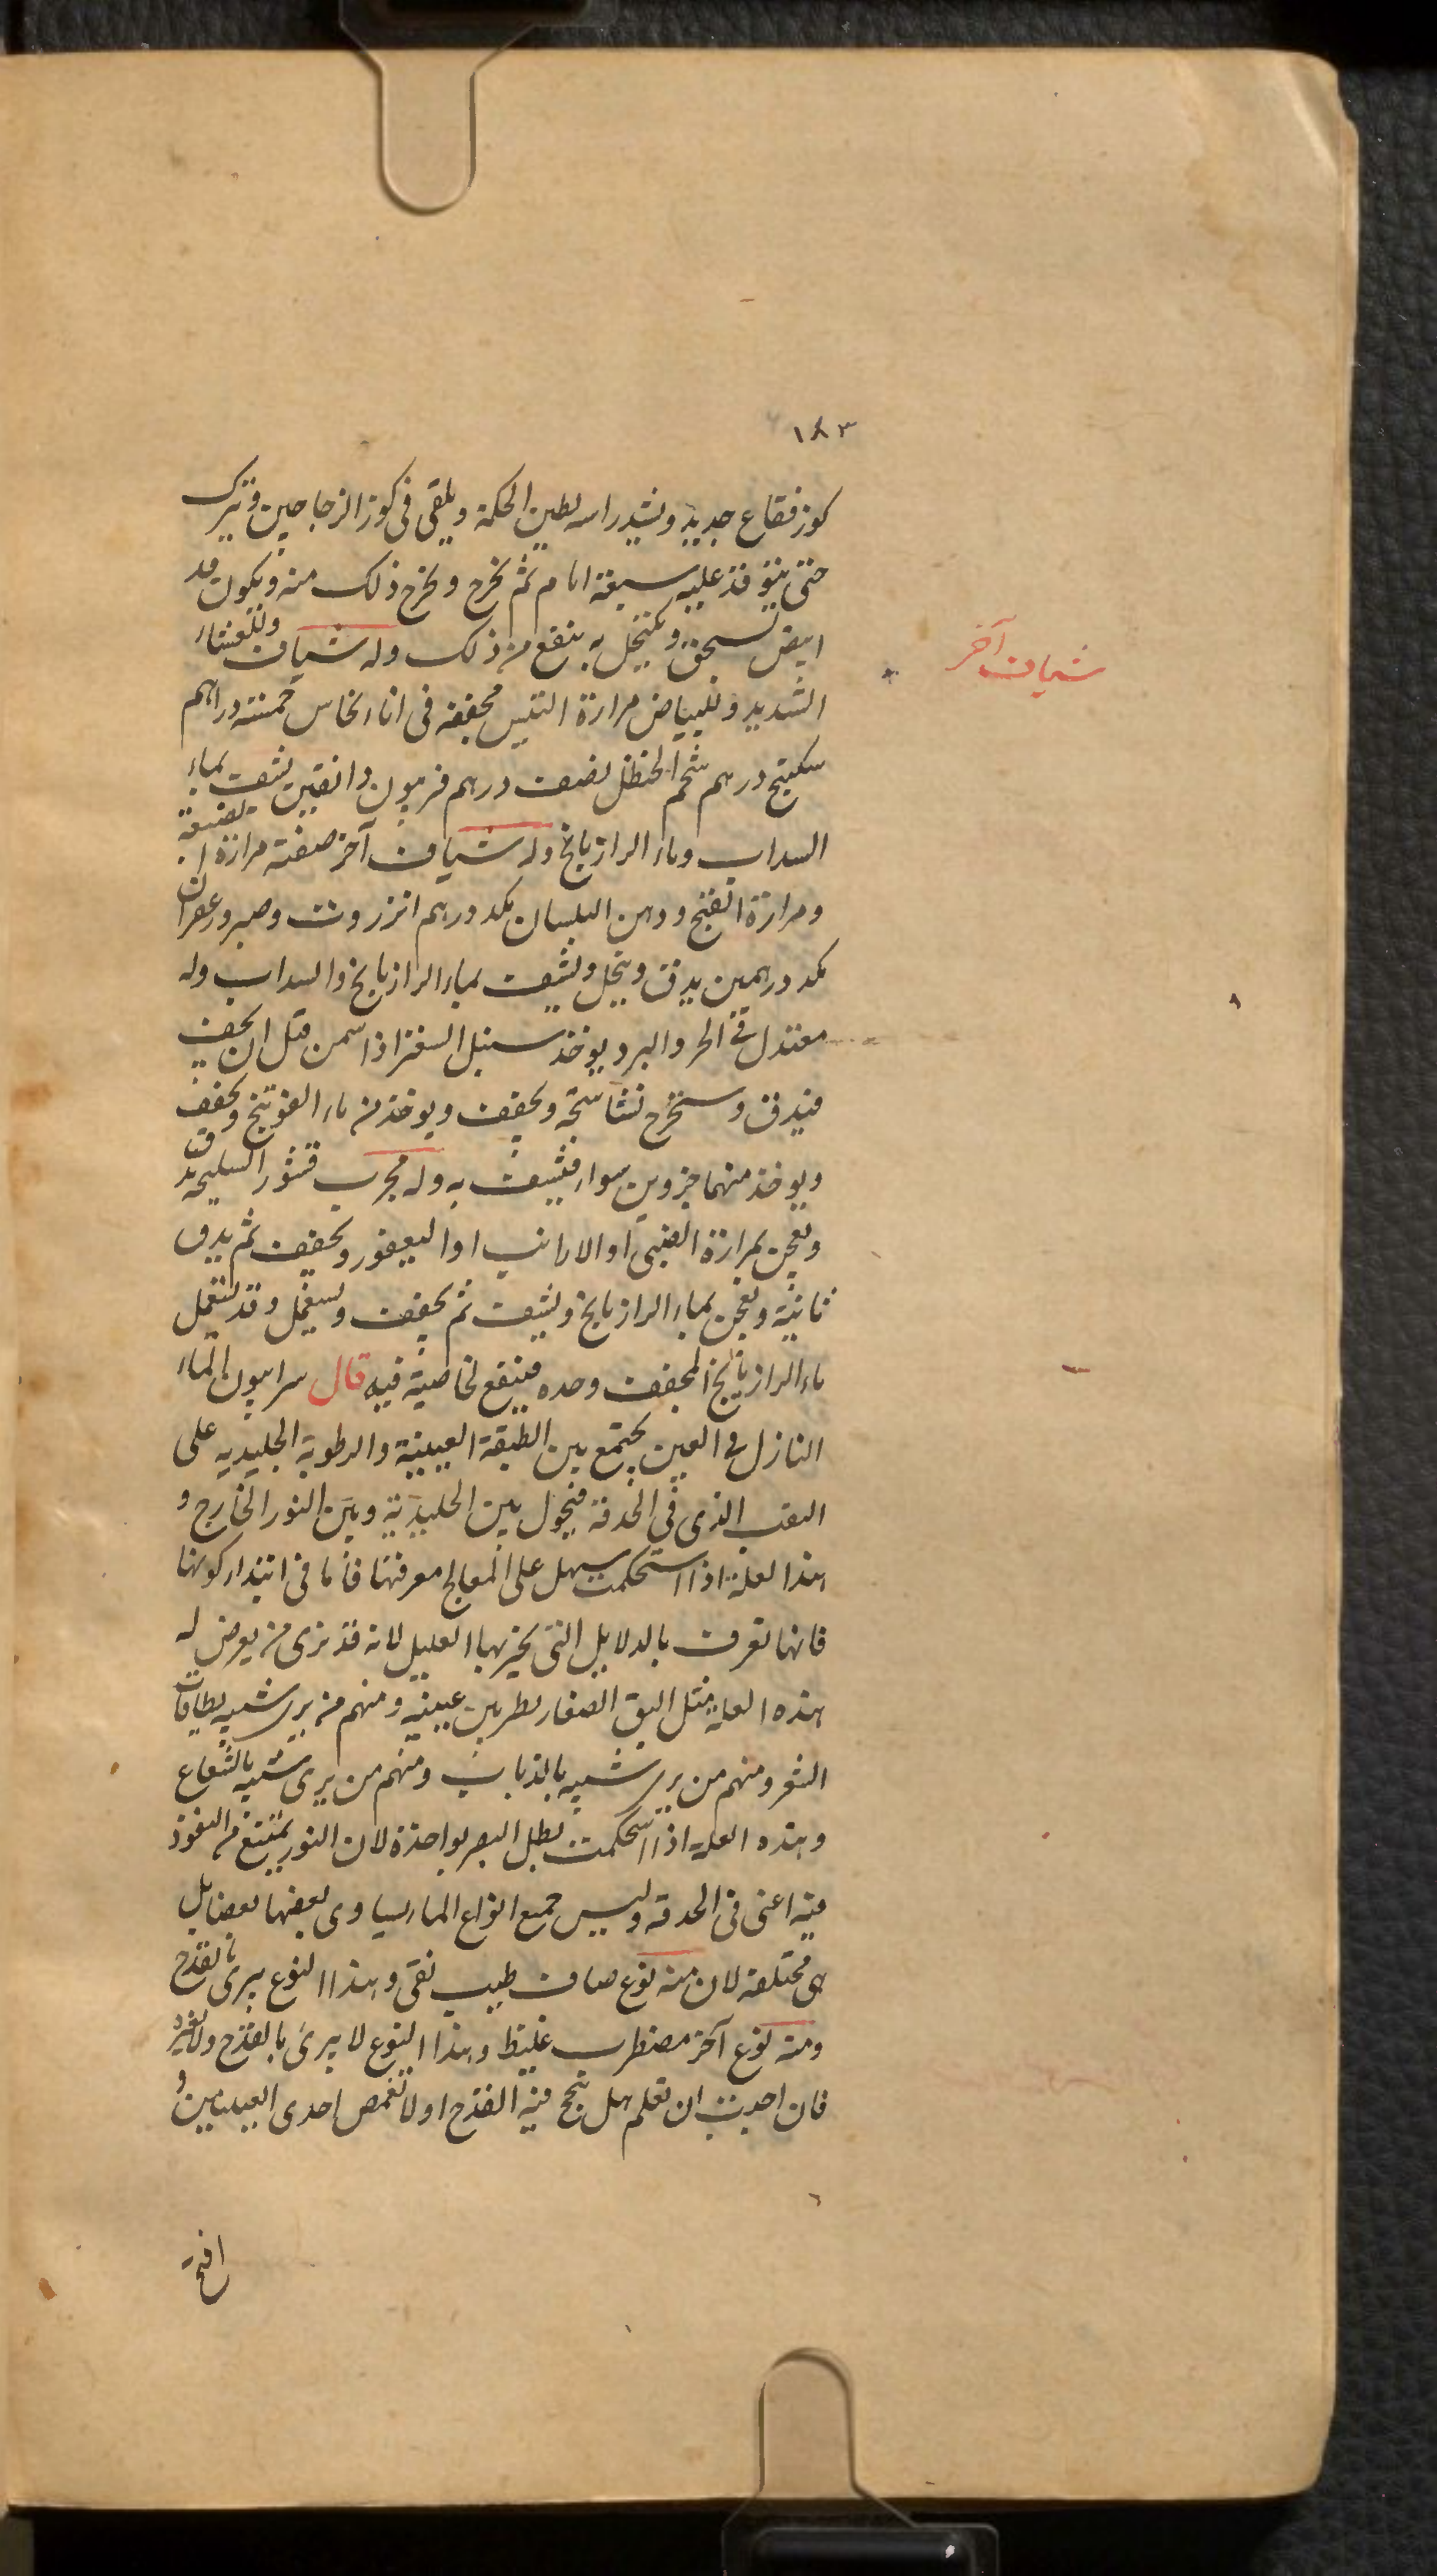 ١٨٣
كوز فقاع جديد ويشد راسه بطين الحكمة ويلقى فى كوز الزجاجين ويترك
حتى يتوقد عليه سبعة ايام ثم يخرج ويخرج ذلك منه ويكون قد
ابيض يسحق ويكتحل به ينفع من ذلك وله شياف وللغشاء
شياف آخر
الشديد وللبياض مرارة التيس مجففة فى اناء نحاس خمسة دراهم
سكبينج درهم شحم الحنظل نصف درهم فربيون دانقين يشيف بماء
السداب وماء الرازيانج وله شياف آخر صفته مرارة
ومرارة القبج ودهن البلسان مكد درهم انزروت وصبر وزعفران
مكد درهمين يدق وينخل ويشيف بماء الرازيانج والسداب وله
معتدل فى الحر والبرد يوخذ سنبل السعتر اذا سمن قبل ان يجف
فيدق ويستخرج نشاستجه ويجفف ويوخذ من ماء الفوتنج ويجفف
ويوخذ منهما جزوين سواء فيشيف به وله مجرب قشور السليخة يدق
ويعجن بمرارة الضبى او الارانب او اليعفور ويجفف ثم يدق
ثانية ويعجن بماء الرازيانج ويشيف ثم يجفف ويستعمل وقد يستعمل
ماء الرازيانج المجفف وحده فينفع لخاصية فيه قال سرابيون الماء
النازل فى العين يجتمع بين الطبقة العينية والرطوبة الجليدية على
الثقب الذى فى الحدقة فيحول بين الجليدية وبين النور الخارج و
هذا العلة اذا استحكمت سهل على المعالج معرفتها فأما فى ابتداء كونها
فانها تعرف بالدلايل التى يخبر بها العليل لانه قد نرى من يعرض له
هذه العلة مثل البق الصغار تطير بين عينيه ومنهم من يرى شبيه بطاقات
الشعر ومنهم من يرى شبيه بالذباب ومنهم من يرى شبيه بالشعاع
وهذه العلة اذا استحكمت بطل البصر بواحدة لان النور يمتنع من النفوذ
فيه اعنى فى الحدقة وليس جميع انواع الماء يساوى بعضها بعضا بل
هى مختلفة لان منه نوع صاف طيب نقى وهذا النوع يبرئ بالقدح
ومنه نوع آخر مضطرب غليظ وهذا النوع لا يبرئ بالقدح ولا بغيره
فان احببت ان تعلم هل ينجح فيه القدح او لا تغمض احدى العينين و
افتح